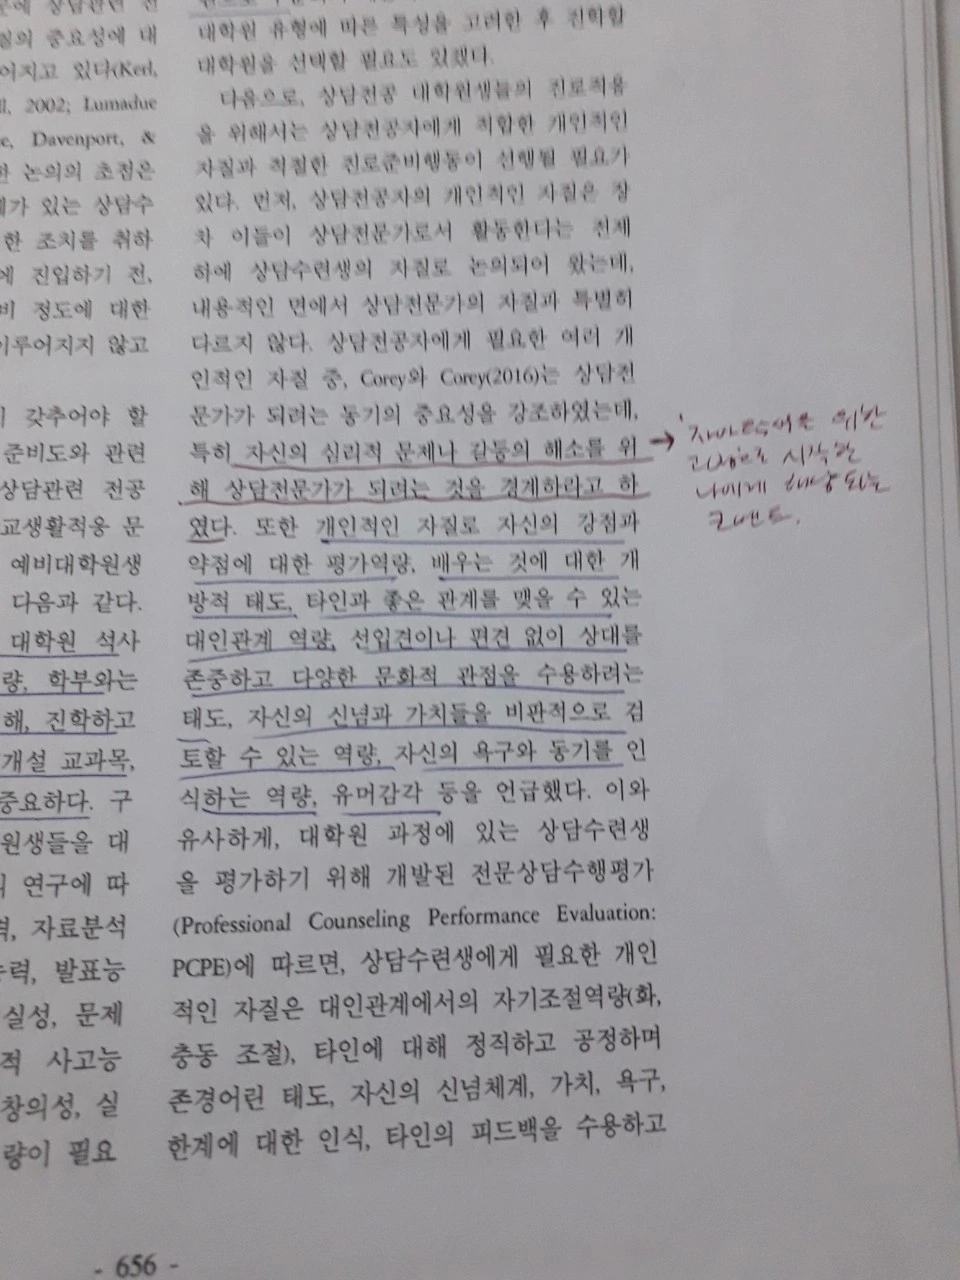 상담관련 전
질의 중요성에 대
어지고 있다(Kerl,
2002; Lumadue
Davenport, &
한 논의의 초점은
가 있는 상담수
한 조치를 취하
에 진입하기 전,
비 정도에 대한
이루어지지 않고
갖추어야 할
준비도와 관련
상담관련 전공
교생활적응 문
예비대학원생
다음과 같다.
대학원 석사
량, 학부와는
해, 진학하고
개설 교과목,
중요하다. 구
원생들을 대
연구에 따
자료분석
발표능
실성, 문제
적 사고능
창의성, 실
량이 필요
대학원 유형에 따른 특성을 고려한 후 진학할
대학원을 선택할 필요도 있겠다.
다음으로, 상담전공 대학원생들의 진로적응
을 위해서는 상담전공자에게 적합한 개인적인
자질과 적절한 진로준비행동이 선행될 필요가
있다. 먼저, 상담전공자의 개인적인 자질은 장
차 이들이 상담전문가로서 활동한다는 전제
하에 상담수련생의 자질로 논의되어 왔는데,
내용적인 면에서 상담전문가의 자질과 특별히
다르지 않다. 상담전공자에게 필요한 여러 개
인적인 자질 중, Corey와 Corey(2016)는 상담전
문가가 되려는 동기의 중요성을 강조하였는데,
특히 자신의 심리적 문제나 갈등의 해소를 위
해 상담전문가가 되려는 것을 경계하라고 하
였다. 또한 개인적인 자질로 자신의 강점과
약점에 대한 평가역량, 배우는 것에 대한 개
방적 태도, 타인과 좋은 관계를 맺을 수 있는
대인관계 역량, 선입견이나 편견 없이 상대를
존중하고 다양한 문화적 관점을 수용하려는
태도, 자신의 신념과 가치들을 비판적으로 검
토할 수 있는 역량, 자신의 욕구와 동기를 인
식하는 역량, 유머감각 등을 언급했다. 이와
유사하게, 대학원 과정에 있는 상담수련생
을 평가하기 위해 개발된 전문상담수행평가
(Professional Counseling Performance Evaluation:
PCPE)에 따르면, 상담수련생에게 필요한 개인
적인 자질은 대인관계에서의 자기조절역량(화,
충동 조절), 타인에 대해 정직하고 공정하며
존경어린 태도, 자신의 신념체계, 가치, 욕구,
한계에 대한 인식, 타인의 피드백을 수용하고
→ 위한
시작한
나에게 해당되는
코멘트.
- 656 -